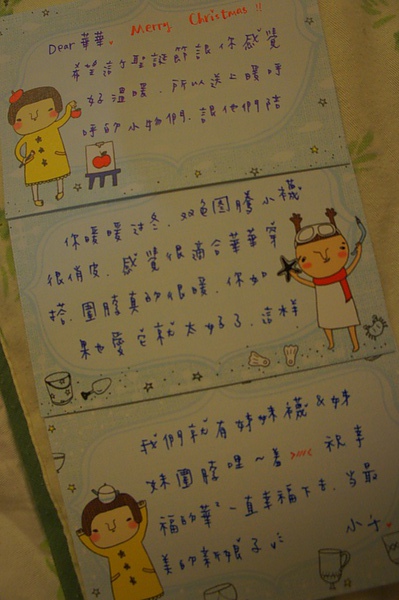 Merry Christmas !!
Dear 華華,
希望這個聖誕節讓你感覺
好溫暖.所以送上暖呼
呼的小物們.讓他們陪
你暖暖過冬.双色圖騰小襪
很俏皮.感覺很適合華華穿
搭.圍脖真的很暖.你如
果也愛它就太好了.這樣
我們就有姊妹襪&姊
妹圍脖哩~
祝幸
福的華一直幸福下去.當最
美的新娘子
小